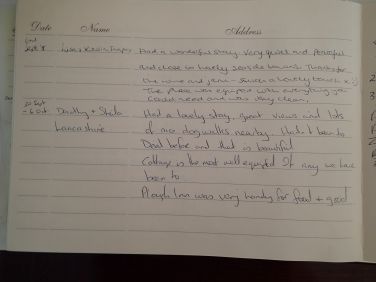 Date Name Address
Had a wonderful stay. very quiet and peaceful
and close to lovely seaside towns. Thanks for
the wine and
The place was equipped with everything you
could need and was very clean.
Dorothy + Sheila Had a lovely stay, great views and lots
Lancashire of nice dog walks nearby. Hadn't been to
Deal before and that is beautiful
Cottage is the most well equipped of any we have
been to
Plough Inn was very handy for food + good